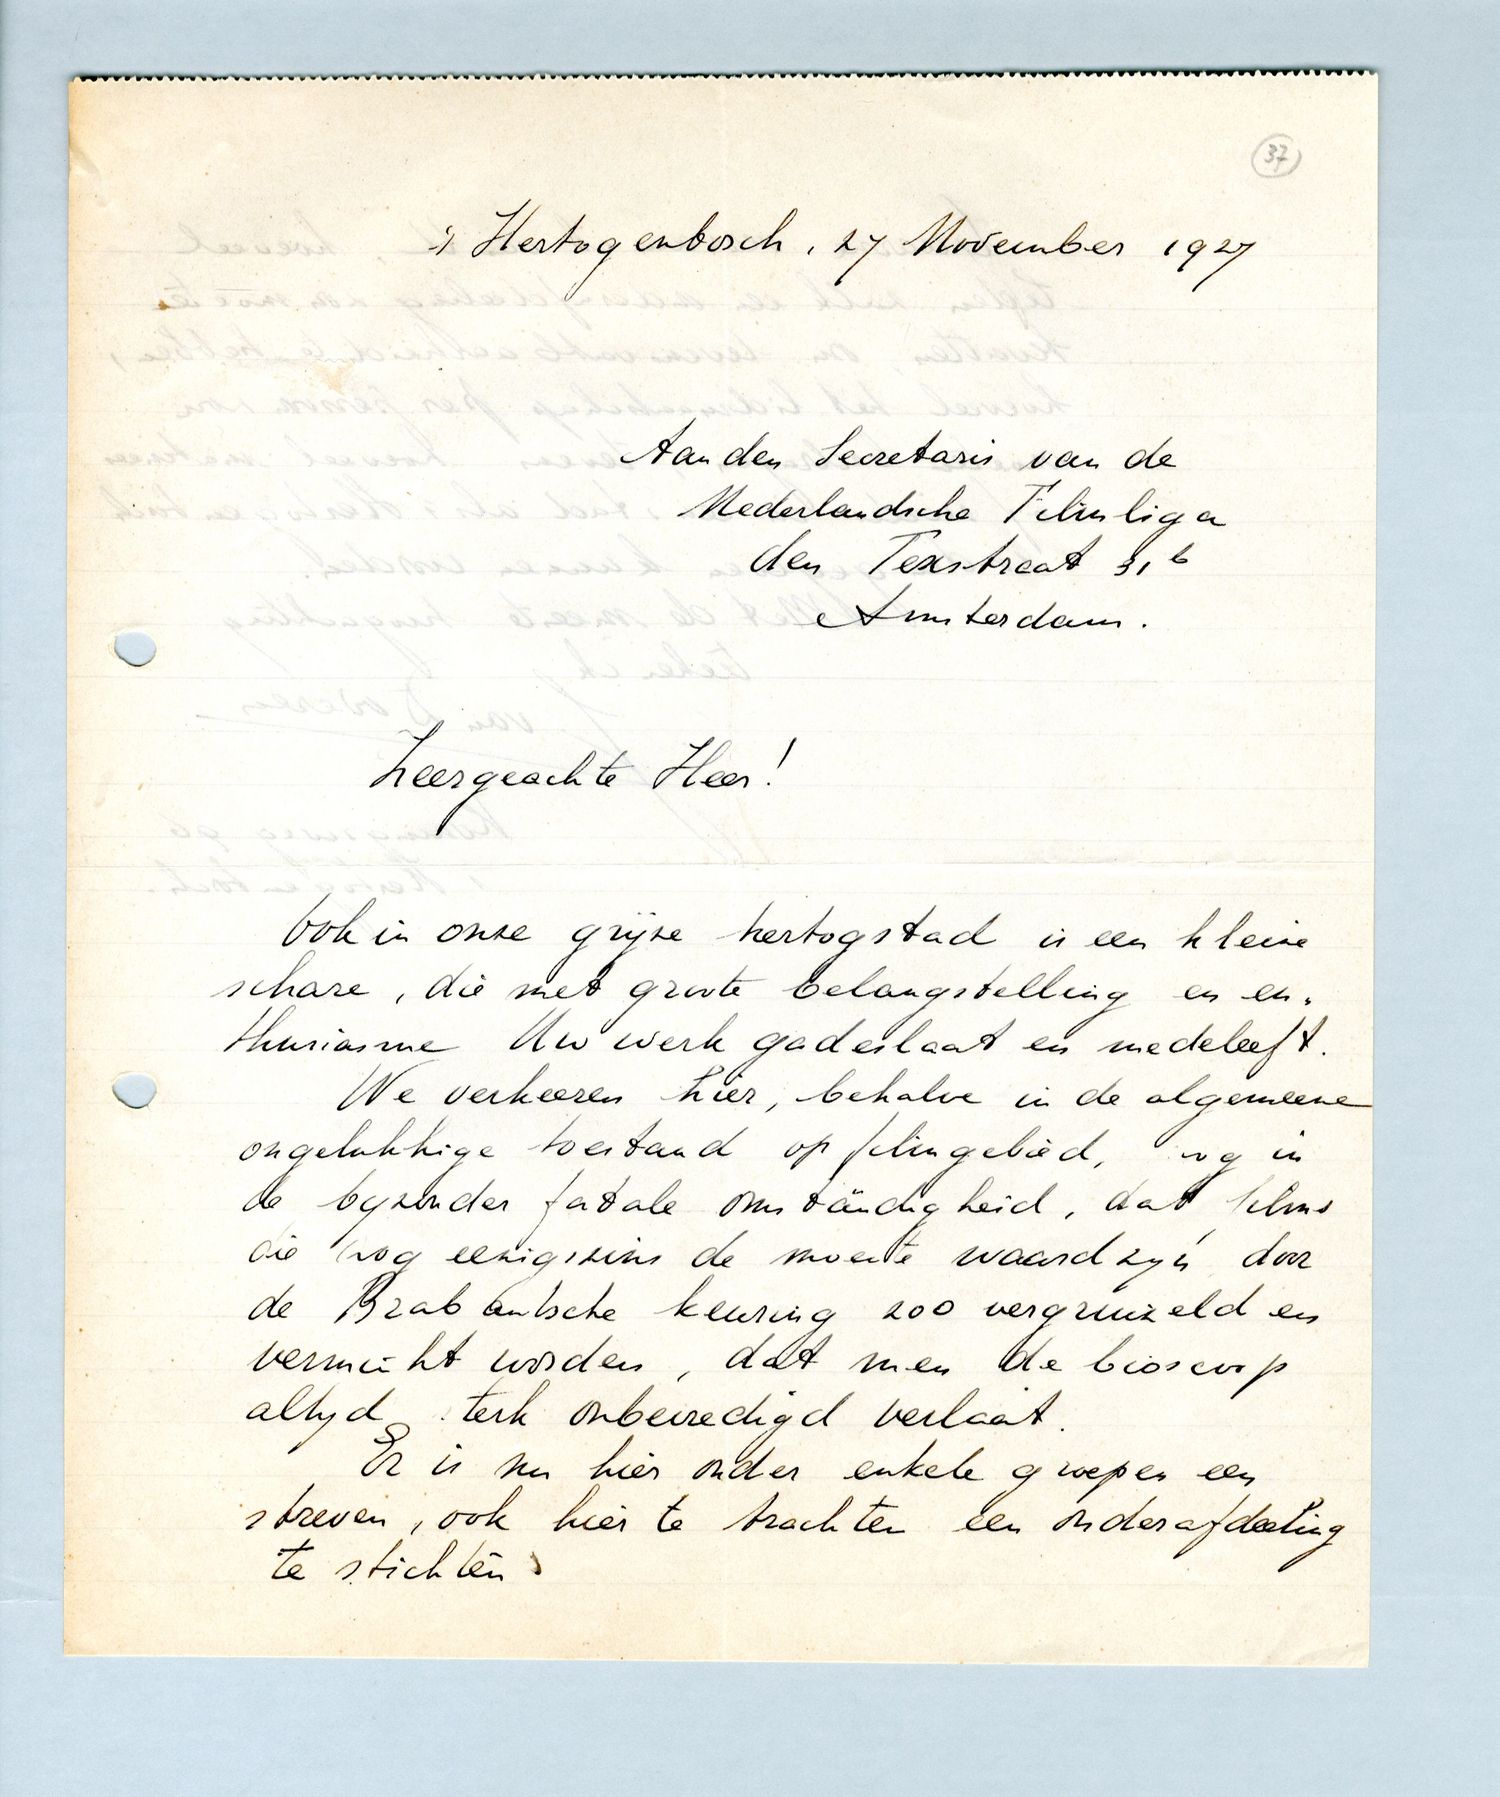 37
's Hertogenbosch, 27 November 1927
Aan den Secretaris van de
Nederlandsche Filmliga
den Texstraat 31 b
Amsterdam.
Zeergeachte Heer!
Ook in onze grijze hertogstad is een kleine
schare, die met groote belangstelling en en-
thusiasme Uw werk gadeslaat en medeleeft.
We verkeeren hier, behalve in de algemeene
ongelukkige toestand op filmgebied, nog in
de byzonder fatale omständigheid, dat films
die nog eenigszins de moeite waard zyn door
de Brabantsche keuring zoo vergruizeld en
verminkt worden, dat men de bioscoop
altyd sterk onbevredigd verlaat.
Er is nu hier onder enkele groepen een
streven, ook hier te trachten een onderafdeeling
te stichten.